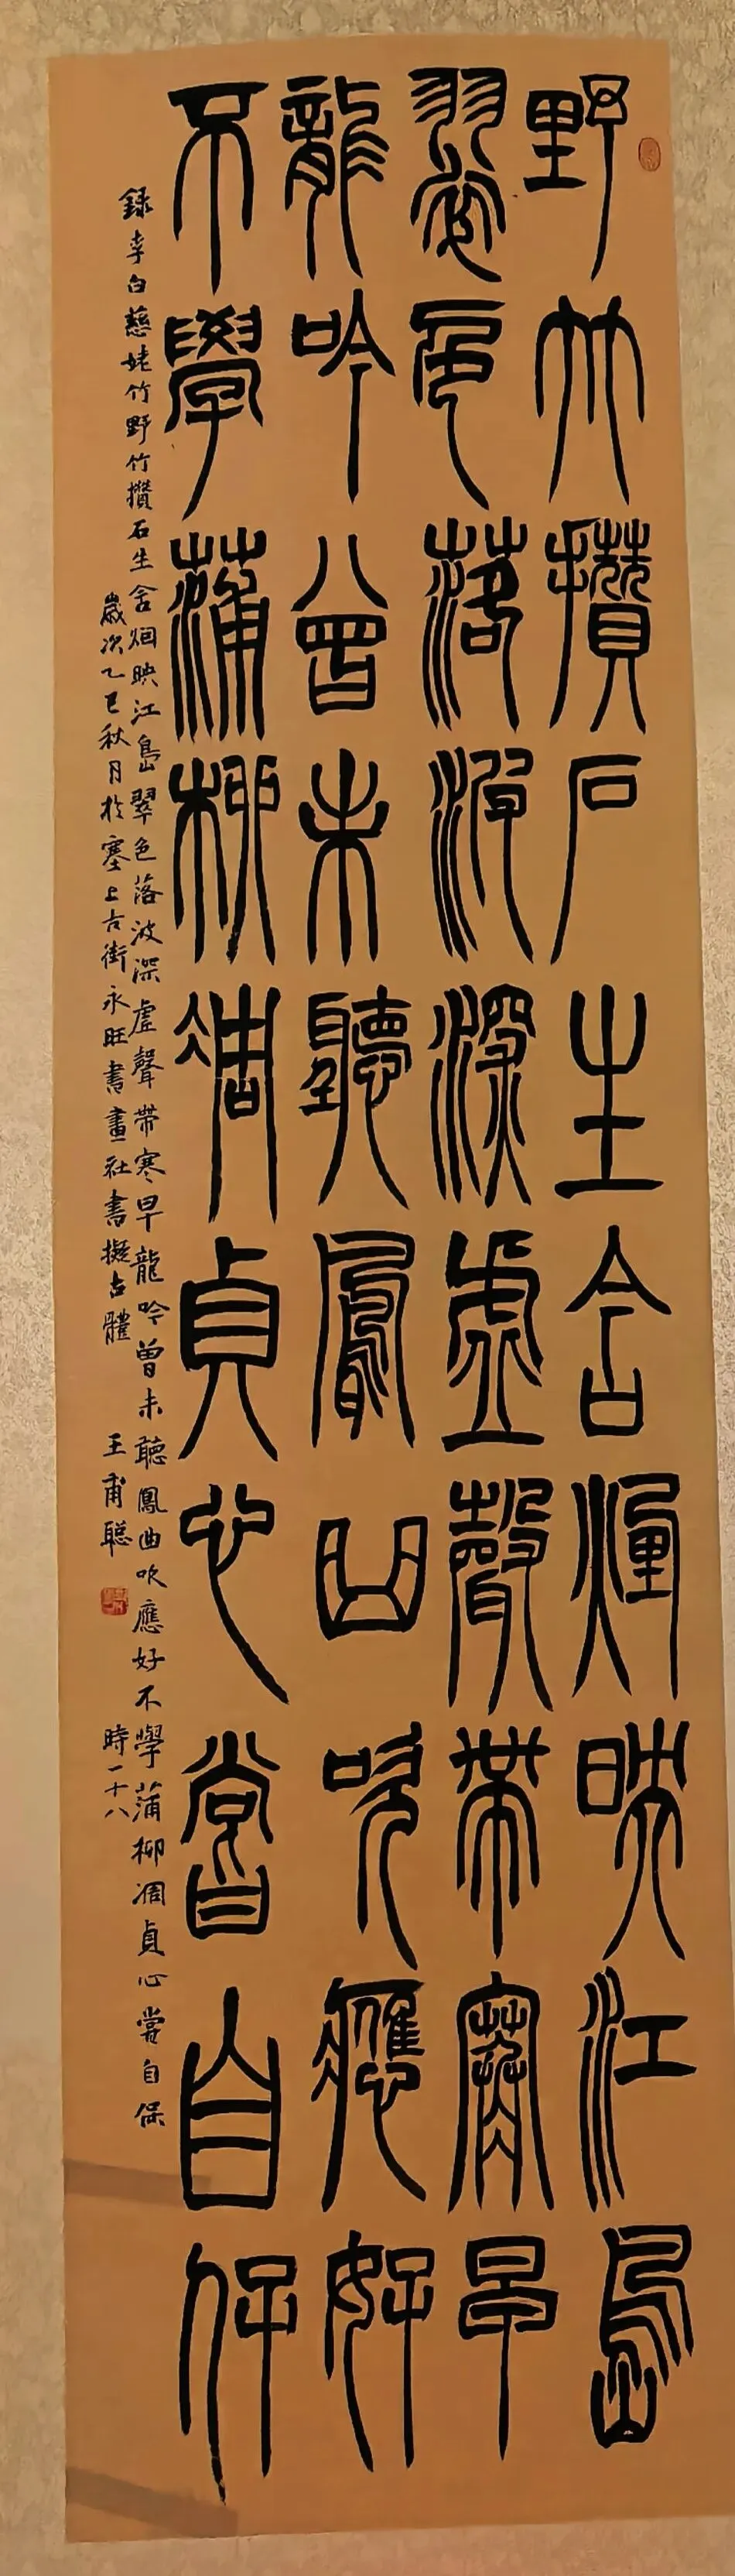 野竹攢石生含煙映江島
翠色落波深虛聲帶寒早
龍吟曾未聽鳳曲吹應好
不學蒲柳凋貞心嘗自保
錄李白慈姥竹野竹攢石生含烟映江島翠色落波深虛聲帶寒早龍吟曾未聽鳳曲吹應好不學蒲柳凋貞心嘗自保
歲次乙巳秋月於塞上古街永旺書畫社書擬古體 王甫聪 時一十八